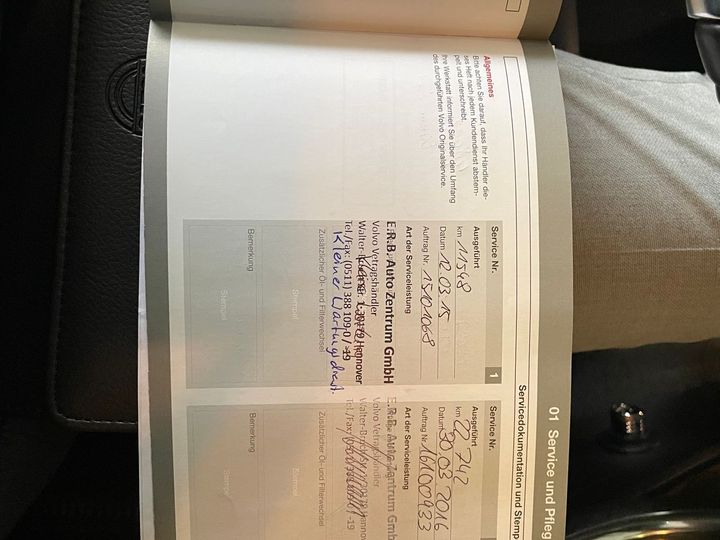 01 Service und Pfleg
Servicedokumentation und Stemp
Allgemeines
Bitte achten Sie darauf, dass Ihr Händler die-
ses Heft nach jedem Kundendienst abstem-
pelt und unterschreibt.
Ihre Werkstatt informiert Sie über den Umfang
des durchgeführten Volvo Originalservice.
Service Nr. 1
Ausgeführt
km 11548
Datum 12.03.15
Auftrag Nr. 15101068
Art der Serviceleistung
E.R.B. Auto Zentrum GmbH
Volvo Vetragshändler
30179 Hannover
Tel./Fax: (0511) 388 109-0 / -19
Kleiner Wartungsdienst.
Zusätzlicher Öl- und Filterwechsel
Stempel
Bemerkung
Stempel
Service Nr.
Ausgeführt
km 22742
Datum 30.03.2016
Auftrag Nr. 16100933
Art der Serviceleistung
E.R.B. Auto Zentrum Gmb
Volvo Vetragshändler
Tel./Fax: -19
Zusätzlicher Öl- und Filterwechsel
Stempel
Bemerkung
Stempel